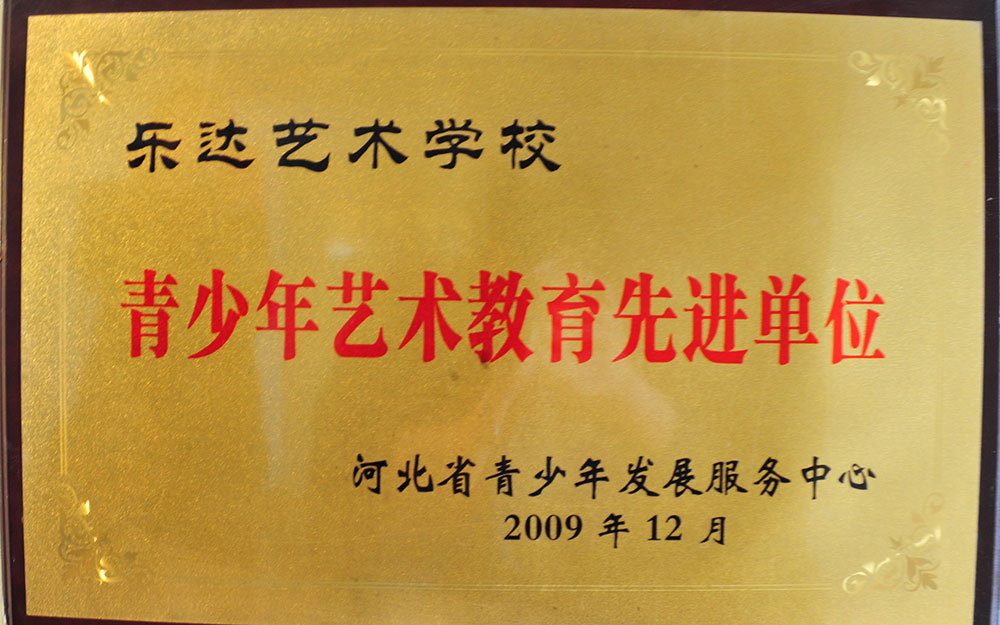 乐达艺术学校
青少年艺术教育先进单位
河北省青少年发展服务中心
2009 年 12 月